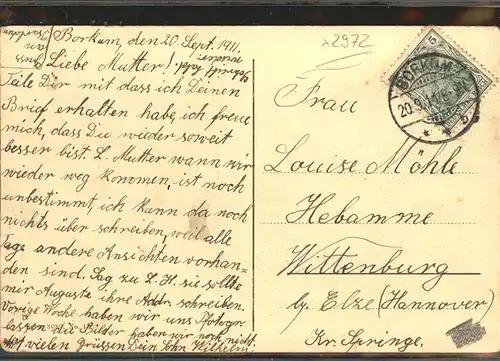 Borkum, den 20 Sept. 1911.
Liebe Mutter!
Teile Dir mit dass ich Deinen
Brief erhalten habe, ich freue
mich, dass Du wieder soweit
besser bist. L. Mutter wann wir
wieder weg kommen, ist noch
unbestimmt, ich kann da noch
nichts über schreiben, weil alle
Tage andere Ansichten vorhan-
den sind. Sag zu L. H. sie sollte
mir Auguste ihre Adr. schreiben.
Vorige Woche haben wir uns Photogr.
lassen die Bilder haben wir noch nicht.
Mit vielen Grüssen Dein Sohn Wilhelm.
x2972
5
BORKUM
20.9.11
Frau
Louise Möhle
Hebamme
Wittenburg
b. Elze (Hannover)
Kr. Springe.